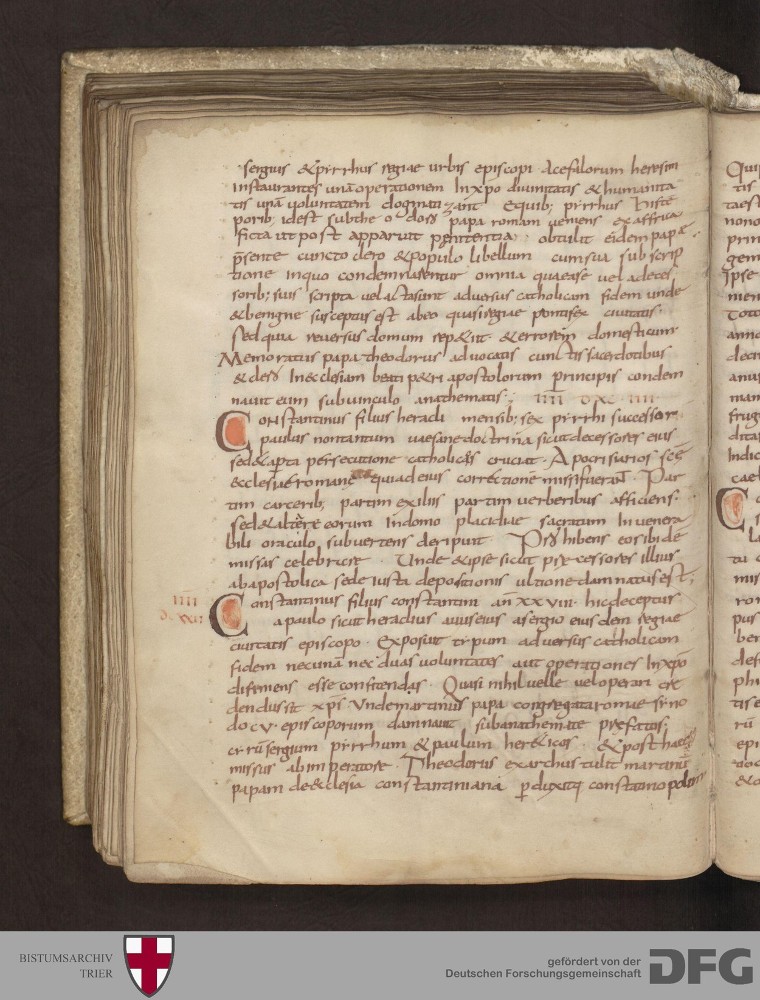 sergius & pyrrhus regiae urbis episcopi Acefalorum heresim
instaurantes unā operationem In xpo diuinitatis & humanita
tis unā uoluntatem dogmatizant E quib; pyrrhus hisTē
porib; id est sub theodoro papa romam ueniens ex affrica
ficta ut post apparuit penitentia · obtulit eidem papae
p̄sente cuncto clero & populo libellum cum sua subscrip
tione in quo condemnarentur omnia quae a se uel a deces
sorib; suis scripta uel acta sunt aduersus catholicam fidem unde
& benigne susceptus est ab eo quasi regiae pontifex ciuitatis ·
Sed quia reuersus domum repetiit & errorem domesticum
Memoratus papa theodorus aduocatis cunctis sacerdotibus
In ecclesiam beati petri apostolorum principis condem
nauit eum sub uinculo anathematis ;
Constantinus filius heracli mensib; sex pyrrhi successor
paulus non tantum uaesane doctrina sicut decessores eius
sed & aperta persecutione catholicos cruciat · Apocrisarios scē
ecclesiae romane qui ad eius correctionē missi fuerant · Par
tim carcerib; partim exiliis partim uerberibus afficiens ·
sed & altare eorum In domo placidiae sacratum In uenera
bili oraculo subuertens deripuit · Prohibens eos ibi de
missas celebrare · Unde & ipse sicut p̄decessores illius
ab apostolica sede iusta depositionis ultione damnatus est ;
IIII
Constantinus filius constantini an̄ XXVIII · hic deceptus
a paulo sicut heraclius auus eius a sergio eiusdem regiae
ciuitatis episcopo · Exposuit typum aduersus catholicam
fidem nec unā nec duas uoluntates aut operationes In xpō
difiniens esse confitendas · Quasi nihil uelle uel operari cre
dendus sit xp̄s Unde martinus papa congregata romae syno
do CV · episcoporum damnauit sub anathemate prefatos ·
cyrū sergium pyrrhum & paulum hereticos · & post haec
missus ab imperatore · Theodorus exarchus tulit martinū
papam de ecclesia constantiniana perduxitq; constantinopolim
BISTUMSARCHIV
TRIER
gefördert von der
Deutschen Forschungsgemeinschaft
DFG